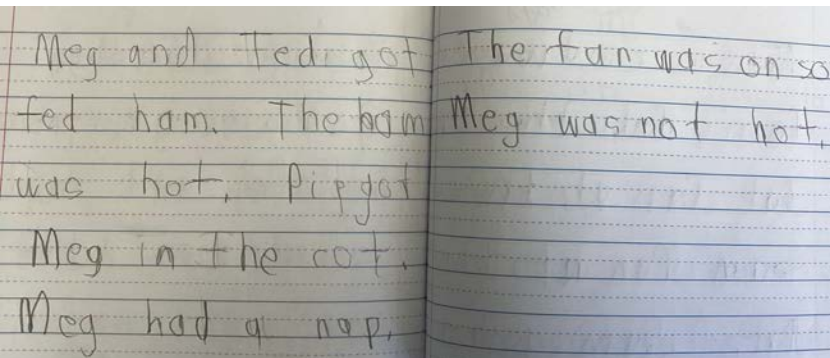 Meg and Ted got
fed ham. The ham
was hot. Pip got
Meg in the cot.
Meg had a nap.
The fan was on so
Meg was not hot.